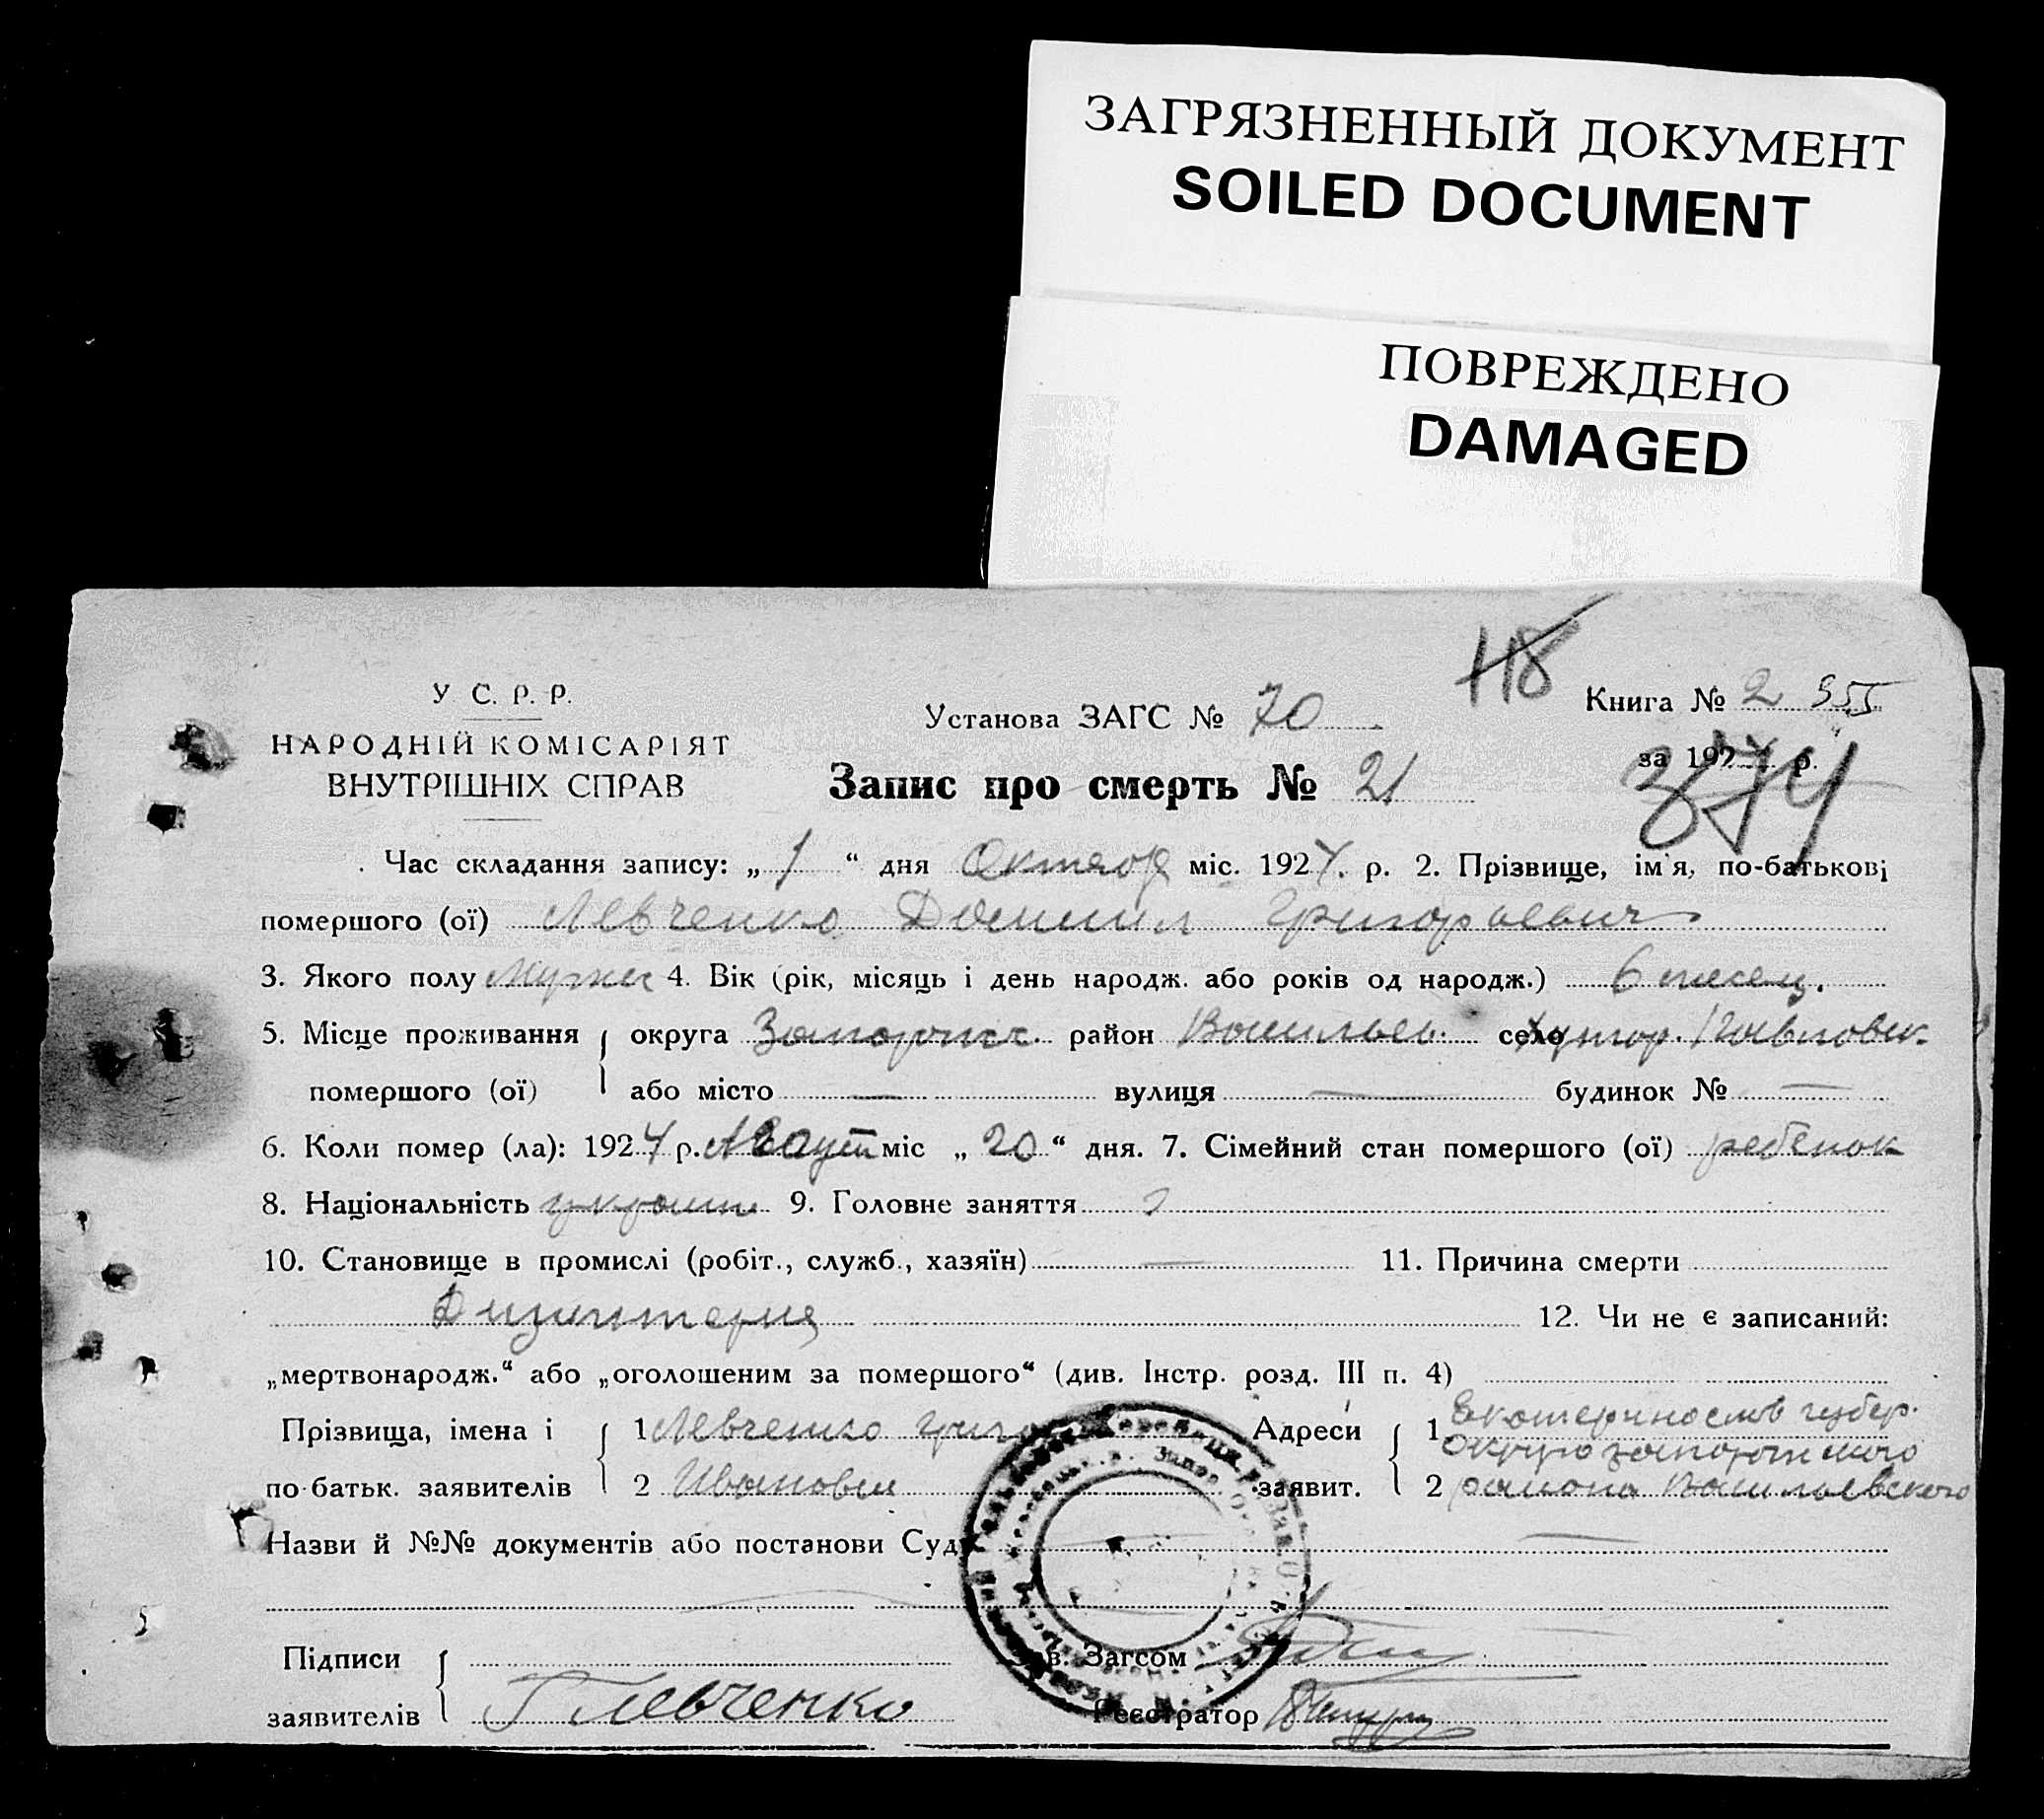 ЗАГРЯЗНЕННЫЙ ДОКУМЕНТ
SOILED DOCUMENT
ПОВРЕЖДЕНО
DAMAGED
118
У С. Р. Р.
НАРОДНІЙ КОМІСАРІЯТ
ВНУТРІШНІХ СПРАВ
Установа ЗАГС № 70
Книга № 2
за 192 р.
374
Запис про смерть № 21
Час складання запису: „ 1 “ дня Октяб міс. 1924. р. 2. Прізвище, ім'я, по-батькові
помершого (ої) Левченко Даниил Григорьевич
3. Якого полу Мужск 4. Вік (рік, місяць і день народж. або років од народж.) 6 месяц.
5. Місце проживання округа Запорожск. район Васильев. село хутор. Павловк.
помершого (ої) або місто — вулиця — будинок № —
6. Коли помер (ла): 1924 р. Август міс „ 20 “ дня. 7. Сімейний стан помершого (ої) ребенок
8. Національність украин 9. Головне заняття
10. Становище в промислі (робіт., служб., хазяїн) — 11. Причина смерти
Дизинтерия 12. Чи не є записаний:
„мертвонародж.“ або „оголошеним за помершого“ (див. Інстр. розд. III п. 4)
Прізвища, імена і 1 Левченко Григо Адреси 1 Екатеринослав губер.
округа запорожского
по-батьк. заявителів 2 Иванович заявит. 2 района Васильевского
Назви й №№ документів або постанови Суд —
Підписи в. Загсом
заявителів Г Левченко Реєстратор